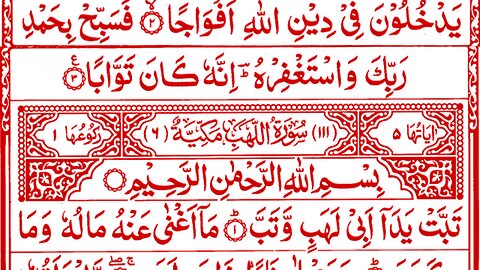 يَدْخُلُوْنَ فِىْ دِيْنِ اللّٰهِ اَفْوَاجًا ۙ﴿۲﴾ فَسَبِّحْ بِحَمْدِ
رَبِّكَ وَاسْتَغْفِرْهُ ؕ اِنَّهٗ كَانَ تَوَّابًا ﴿۳﴾ ع
اٰيَاتُهَا ۵ (۱۱۱) سُوْرَةُ اللَّهَبِ مَكِّيَّةٌ (۶) رُكُوْعُهَا ۱
بِسْمِ اللّٰهِ الرَّحْمٰنِ الرَّحِيْمِ
تَبَّتْ يَدَاۤ اَبِىْ لَهَبٍ وَّتَبَّ ؕ﴿۱﴾ مَاۤ اَغْنٰى عَنْهُ مَالُهٗ وَمَا